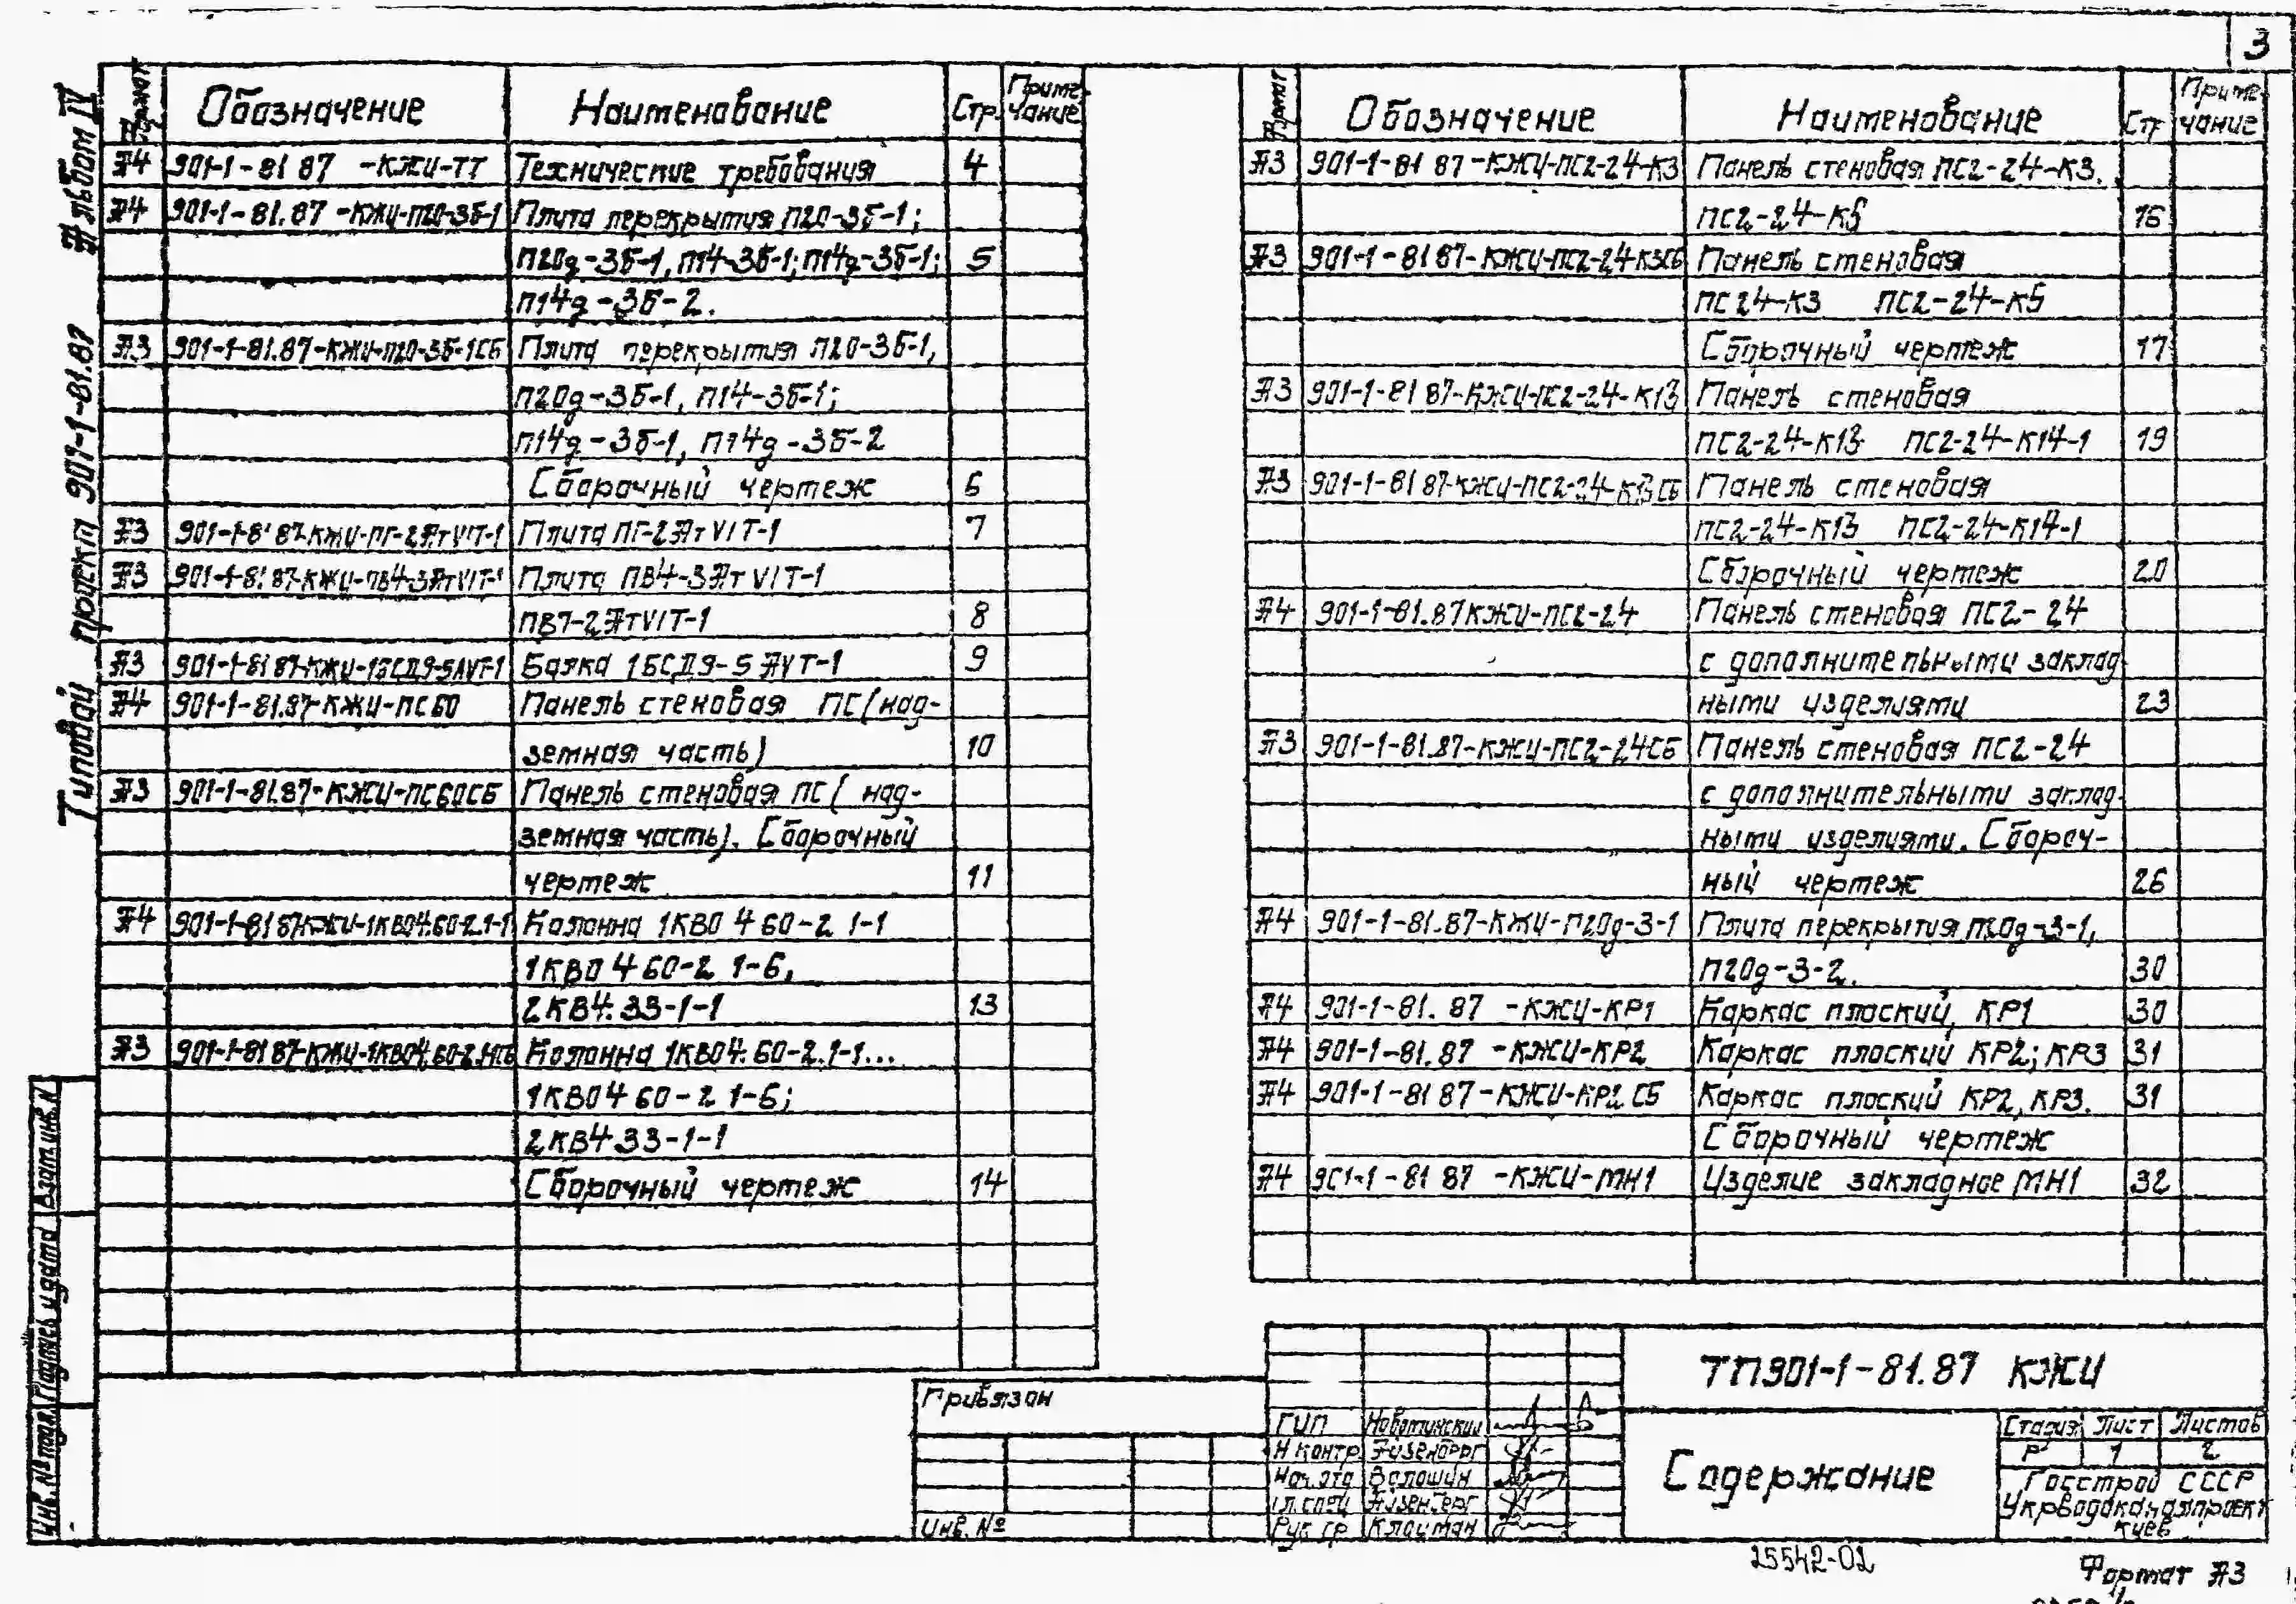 3
Альбом IV
Типовой проект 901-1-81.87
Формат Обозначение Наименование Стр. Приме-
чание
А4 901-1-81 87 -КЖИ-ТТ Технические требования 4
А4 901-1-81.87 -КЖИ-П20-3Б-1 Плита перекрытия П20-3Б-1;
П20д-3Б-1, П14-3Б-1; П14д-3Б-1; 5
П14д-3Б-2.
А3 901-1-81.87-КЖИ-П20-3Б-1СБ Плита перекрытия П20-3Б-1,
П20д-3Б-1, П14-3Б-1;
П14д-3Б-1, П14д-3Б-2
Сборочный чертеж 6
А3 901-1-81 87-КЖИ-ПГ-2АтVIТ-1 Плита ПГ-2АтVIТ-1 7
А3 901-1-81.87-КЖИ-ПВ4-3АтVIТ-1 Плита ПВ4-3АтVIТ-1
ПВ7-2АтVIТ-1 8
А3 901-1-81 87-КЖИ-1БСД9-5АVТ-1 Балка 1БСД9-5АVТ-1 9
А4 901-1-81.87-КЖИ-ПС60 Панель стеновая ПС(над-
земная часть) 10
А3 901-1-81.87-КЖИ-ПС60СБ Панель стеновая ПС( над-
земная часть). Сборочный
чертеж 11
А4 901-1-81 87КЖИ-1КВ04.60-2.1-1 Колонна 1КВ0 4 60-2 1-1
1КВ0 4 60-2 1-6,
2КВ4.33-1-1 13
А3 901-1-81 87-КЖИ-1КВ04.60-2.1-1СБ Колонна 1КВ04.60-2.1-1...
1КВ04 60-2 1-6;
2КВ4 33-1-1
Сборочный чертеж 14
Формат Обозначение Наименование Стр Приме-
чание
А3 901-1-81 87-КЖИ-ПС2-24-К3 Панель стеновая ПС2-24-К3.
ПС2-24-К5 16
А3 901-1-81 87-КЖИ-ПС2-24-К3СБ Панель стеновая
ПС 24-К3 ПС2-24-К5
Сборочный чертеж 17
А3 901-1-81 87-КЖИ-ПС2-24-К13 Панель стеновая
ПС2-24-К13 ПС2-24-К14-1 19
А3 901-1-81 87-КЖИ-ПС2-24-К13СБ Панель стеновая
ПС2-24-К13 ПС2-24-К14-1
Сборочный чертеж 20
А4 901-1-81.87КЖИ-ПС2-24 Панель стеновая ПС2-24
с дополнительными заклад-
ными изделиями 23
А3 901-1-81.87-КЖИ-ПС2-24СБ Панель стеновая ПС2-24
с дополнительными заклад-
ными изделиями. Сбороч-
ный чертеж 26
А4 901-1-81.87-КЖИ-П20д-3-1 Плита перекрытия П20д-3-1,
П20д-3-2. 30
А4 901-1-81. 87 -КЖИ-КР1 Каркас плоский, КР1 30
А4 901-1-81.87 -КЖИ-КР2 Каркас плоский КР2; КР3 31
А4 901-1-81 87 -КЖИ-КР2 СБ Каркас плоский КР2, КР3. 31
Сборочный чертеж
А4 901-1-81 87 -КЖИ-МН1 Изделие закладное МН1 32
Инв. № подл. Подпись и дата Взам инв. N
Привязан
Инв. №
ГИП
Н контр. Айзенберг
Нач. отд Волошин
Гл. спец Айзенберг
Рук гр Клоцман
ТП901-1-81.87 КЖИ
Содержание
Стадия Лист Листов
Р 1 2
Госстрой СССР
Укрводоканалпроект
Киев
25542-02
Формат А3